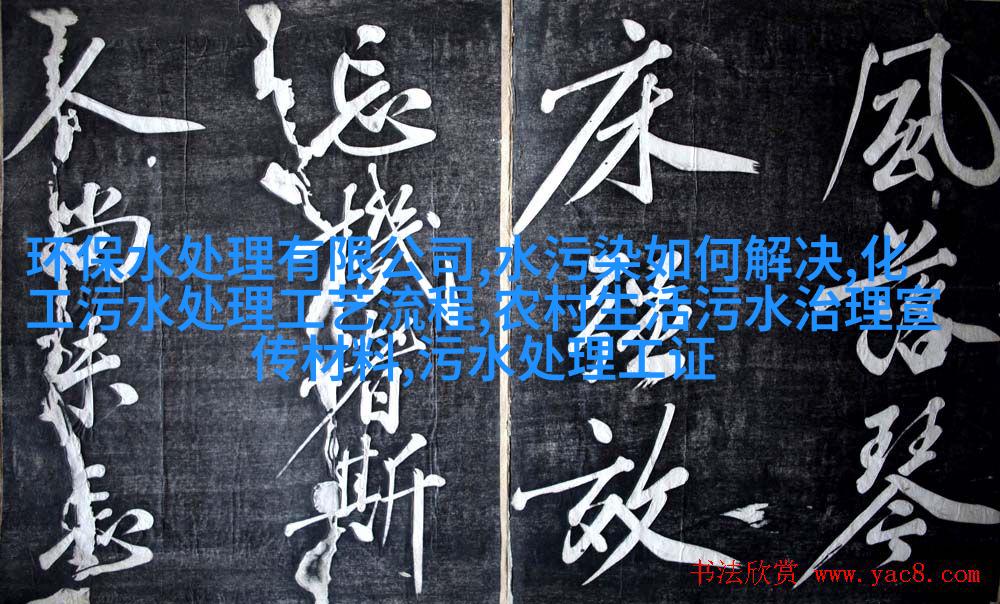 風落琴
床
忘機督斯
尚
环保水处理有限公司,水污染如何解决,化
工污水处理工艺流程,农村生活污水治理宣
传材料,污水处理工证
书法欣赏 www.yac8.com